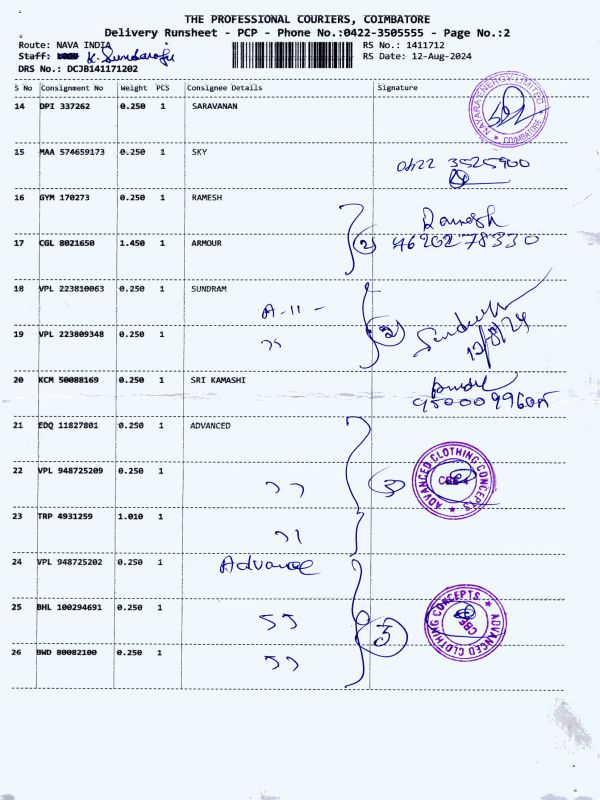 THE PROFESSIONAL COURIERS, COIMBATORE
Delivery Runsheet - PCP - Phone No.:0422-3505555 - Page No.:2
Route: NAVA INDIA RS No.: 1411712
Staff: K. Sundaraju RS Date: 12-Aug-2024
DRS No.: DCJB141171202
S No Consignment No Weight PCS Consignee Details Signature
14 DPI 337262 0.250 1 SARAVANAN
NAVARA ENERGY LIMITED * COIMBATORE *
15 MAA 574659173 0.250 1 SKY
0422 3525900
16 GYM 170273 0.250 1 RAMESH
Ramesh
17 CGL 8021650 1.450 1 ARMOUR (2)
18 VPL 223810063 0.250 1 SUNDRAM
A-11 -
19 VPL 223809348 0.250 1 " (2)
12/8/24
20 KCM 50088169 0.250 1 SRI KAMASHI
21 EDQ 11827801 0.250 1 ADVANCED
22 VPL 948725209 0.250 1 " (3)
ADVANCED CLOTHING CONCEPTS * CBE-4
23 TRP 4931259 1.010 1 "
24 VPL 948725202 0.250 1 Advance
25 BHL 100294691 0.250 1 " (3)
ADVANCED CLOTHING CONCEPTS * CBE
26 BWD 80082100 0.250 1 "